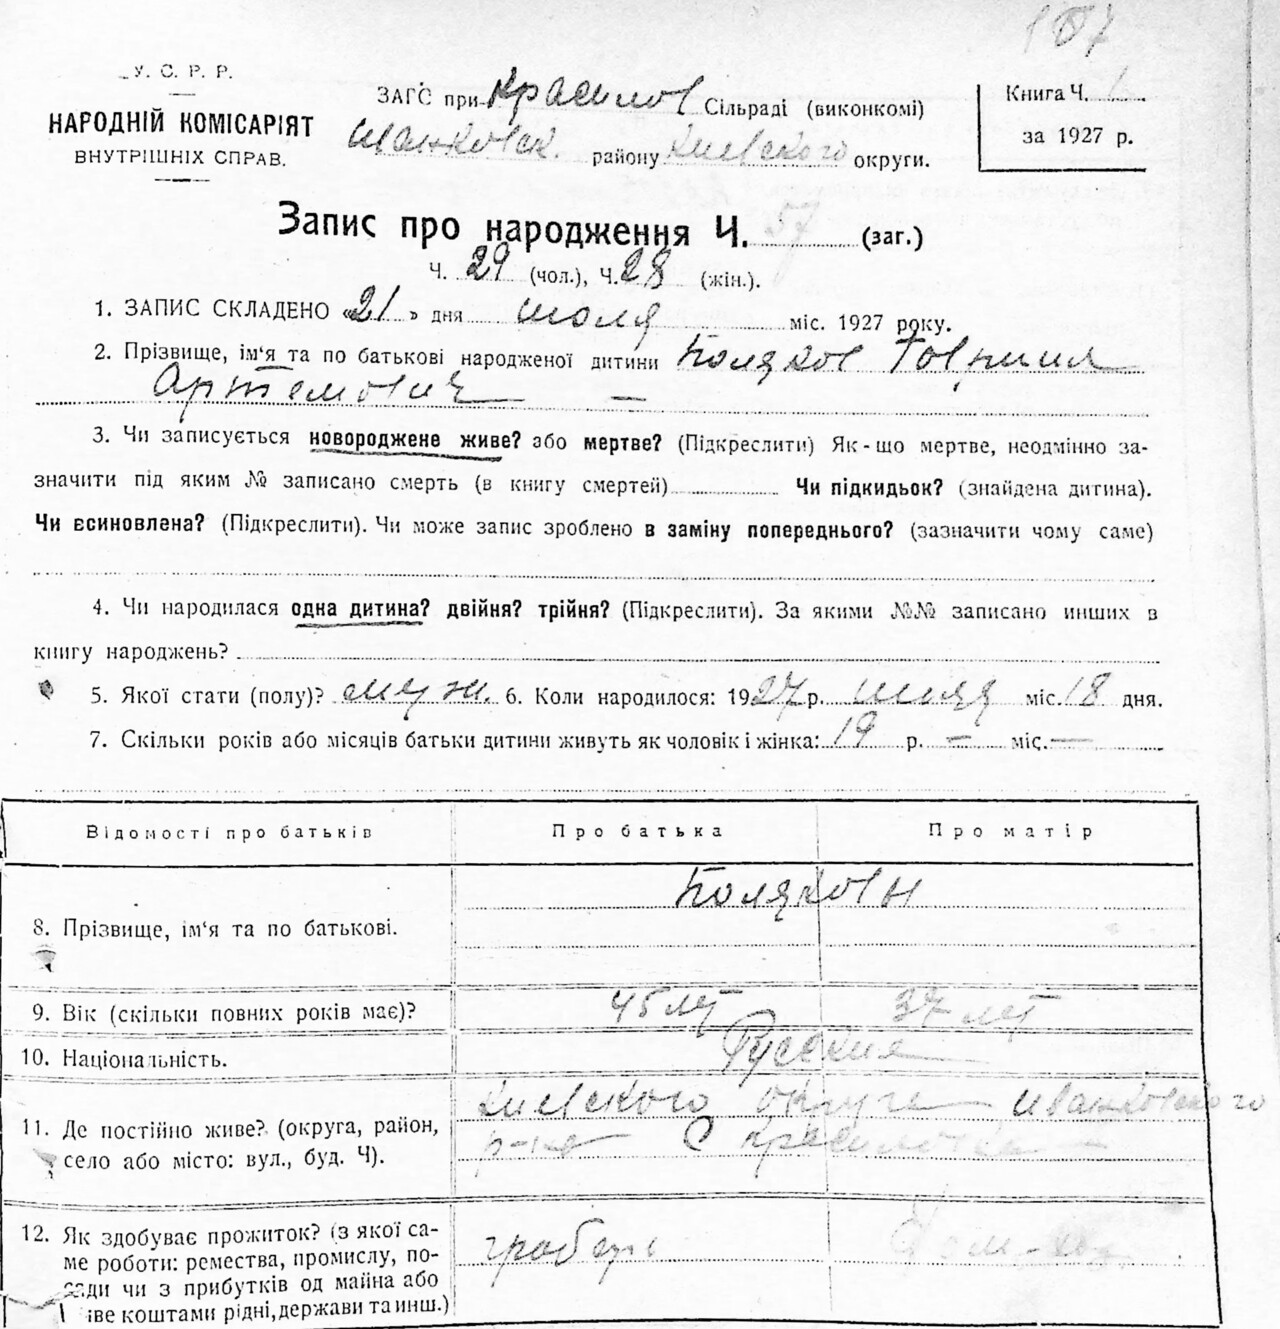 107
У. С. Р. Р.
НАРОДНІЙ КОМІСАРІЯТ
ВНУТРІШНІХ СПРАВ.
ЗАГС при Красилов Сільраді (виконкомі)
Иванковск. району Киевского округи.
Книга Ч. 1
за 1927 р.
Запис про народження Ч. 57 (заг.)
Ч. 29 (чол.), Ч. 28 (жін.).
1. ЗАПИС СКЛАДЕНО «21» дня июля міс. 1927 року.
2. Прізвище, ім‘я та по батькові народженої дитини Поляков Гавриил
Артемович —
3. Чи записується новороджене живе? або мертве? (Підкреслити) Як-що мертве, неодмінно за-
значити під яким № записано смерть (в книгу смертей) Чи підкидьок? (знайдена дитина).
Чи єсиновлена? (Підкреслити). Чи може запис зроблено в заміну попереднього? (зазначити чому саме)
4. Чи народилася одна дитина? двійня? трійня? (Підкреслити). За якими №№ записано инших в
книгу народжень?
5. Якої стати (полу)? муж. 6. Коли народилося: 1927 р. июля міс. 18 дня.
7. Скільки років або місяців батьки дитини живуть як чоловік і жінка: 19 р. — міс. —
Відомості про батьків Про батька Про матір
8. Прізвище, ім‘я та по батькові. Поляковы
9. Вік (скільки повних років має)? 45 лет 37 лет
10. Національність. Русские
11. Де постійно живе? (округа, район, Киевского округа Иванковского
село або місто: вул., буд. Ч). р-на С Красиловка —
12. Як здобуває прожиток? (з якої са-
ме роботи: ремества, промислу, по-
сади чи з прибутків од майна або
іве коштами рідні, держави та инш.)